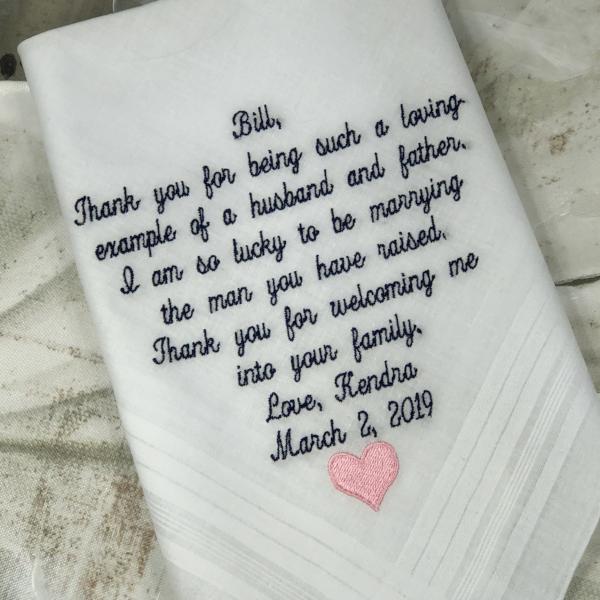 Bill,
Thank you for being such a loving
example of a husband and father.
I am so lucky to be marrying
the man you have raised.
Thank you for welcoming me
into your family.
Love, Kendra
March 2, 2019